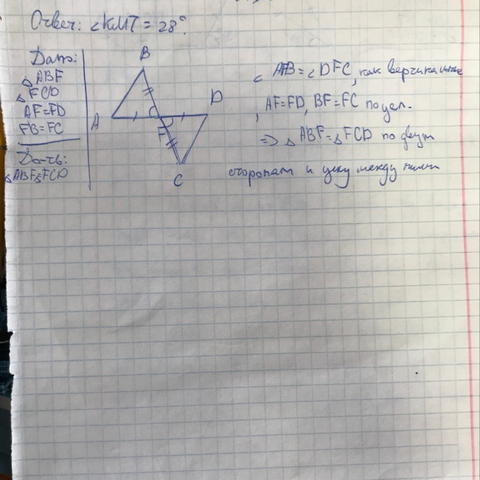 Ответ: ∠KMT = 28°.
Дано:
△ABF
△FCD
AF=FD
FB=FC
Док-ть:
△ABF=△FCD
B
A
D
F
C
∠AFB=∠DFC, как вертикальные
, AF=FD, BF=FC по усл.
=> △ABF=△FCD по двум
сторонам и углу между ними